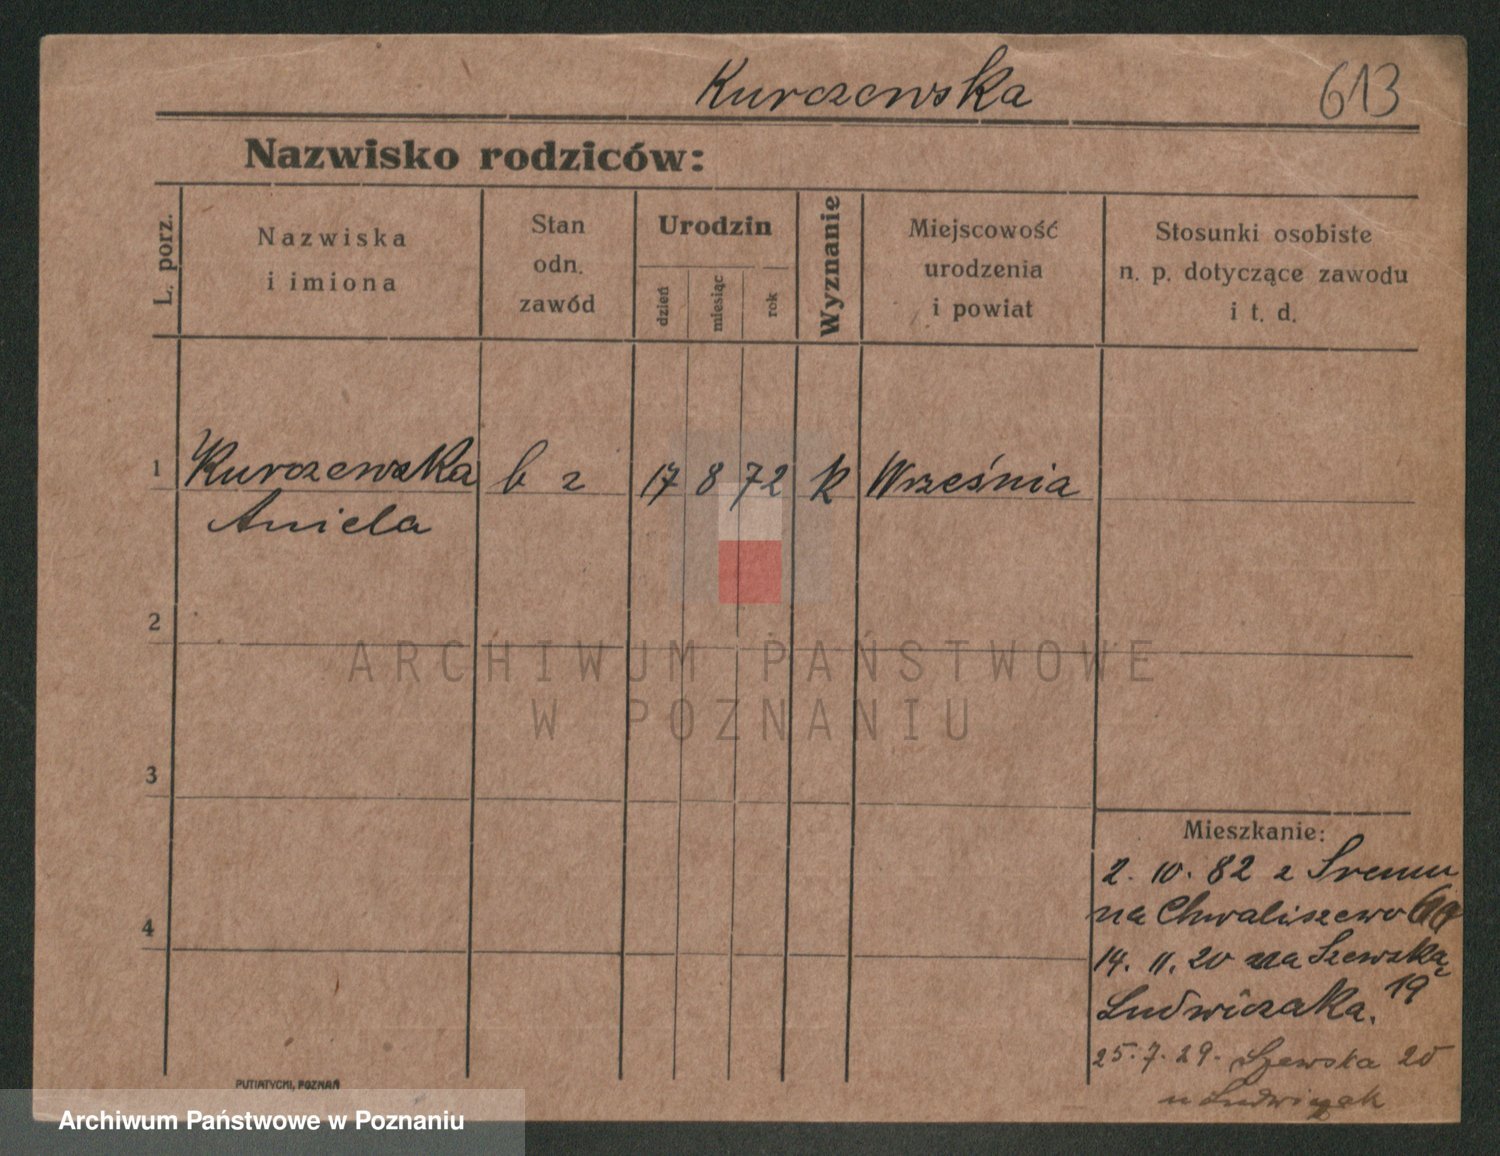 Kurczewska 613
Nazwisko rodziców:
L. porz.
Nazwiska
i imiona
Stan
odn.
zawód
Urodzin
dzień
miesiąc
rok
Wyznanie
Miejscowość
urodzenia
i powiat
Stosunki osobiste
n. p. dotyczące zawodu
i t. d.
1 Kurczewska b z 17 8 72 k Września
Aniela
2
3
4
Mieszkanie:
2. 10. 82 z Śremu
na Chwaliszewo
14. 11. 20 na Szewską
19
Ludwiczaka.
25. 7. 29. Szewska 20
u Ludwiczak
PUTIATYCKI, POZNAŃ
ARCHIWUM PAŃSTWOWE
W POZNANIU
Archiwum Państwowe w Poznaniu